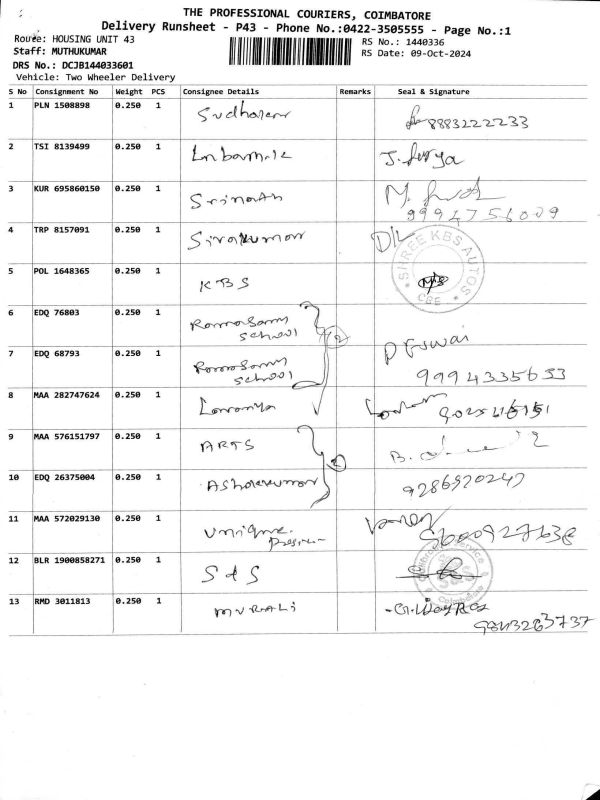 THE PROFESSIONAL COURIERS, COIMBATORE
Delivery Runsheet - P43 - Phone No.:0422-3505555 - Page No.:1
Route: HOUSING UNIT 43
RS No.: 1440336
Staff: MUTHUKUMAR
RS Date: 09-Oct-2024
DRS No.: DCJB144033601
Vehicle: Two Wheeler Delivery
S No Consignment No Weight PCS Consignee Details Remarks Seal & Signature
1 PLN 1508898 0.250 1
8883222233
2 TSI 8139499 0.250 1
J. Surya
3 KUR 695860150 0.250 1 Srinath
9994756009
4 TRP 8157091 0.250 1 Sivakumar D/L
SHREE KBS AUTOS
CBE
5 POL 1648365 0.250 1 KBS
6 EDQ 76803 0.250 1 Ramasamy
School
2
7 EDQ 68793 0.250 1 Ramasamy
School
9994335653
8 MAA 282747624 0.250 1 Lavanya
9 MAA 576151797 0.250 1 ARTS
10 EDQ 26375004 0.250 1 Ashokkumar 9286920247
11 MAA 572029130 0.250 1 Unique
5600927638
12 BLR 1900858271 0.250 1 S & S
Coimbatore
13 RMD 3011813 0.250 1 MURALI
9843263737